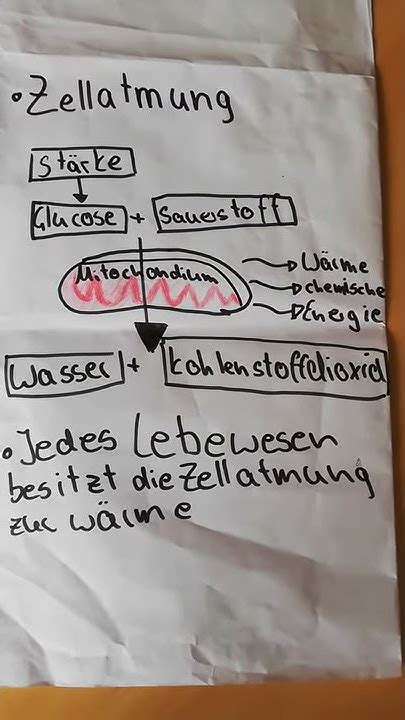 • Zellatmung
Stärke
Glucose + Sauerstoff
Mitochondium
Wärme
chemische
Energie
Wasser + Kohlenstoffdioxid
• Jedes Lebewesen
besitzt die Zellatmung
zur wärme